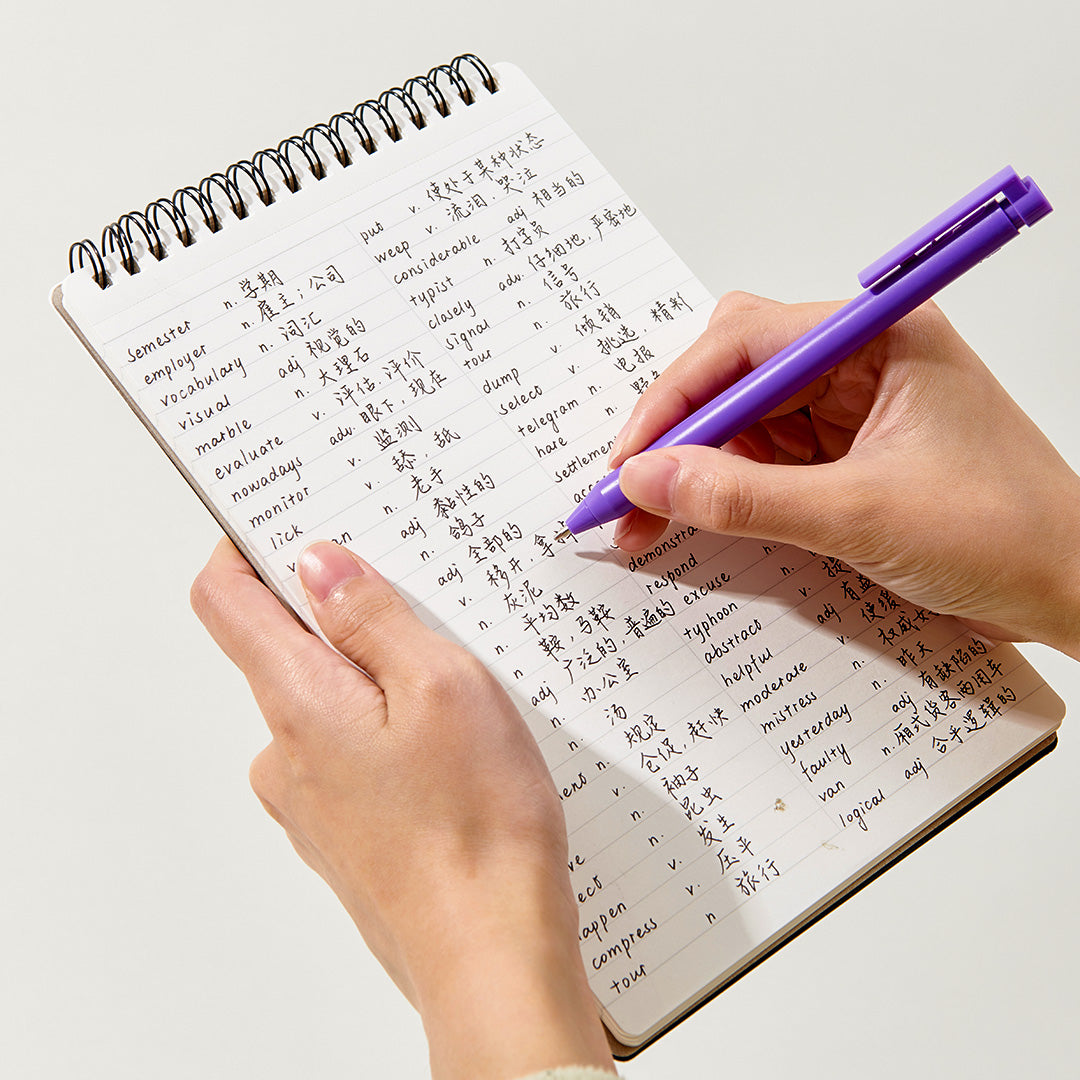 semester n. 学期
employer n. 雇主；公司
vocabulary n. 词汇
visual adj 视觉的
marble n. 大理石
evaluate v. 评估，评价
nowadays adv. 眼下，现在
monitor v. 监测
lick v. 舔，舐
n. 老手
adj 黏性的
n. 鸽子
adj 全部的
v. 移开，拿
n. 灰泥
n. 平均数
n 鞍，马鞍
adj 广泛的，普遍的
n. 办公室
n. 汤
n. 规定
v. 仓促，赶快
n. 袖子
n. 昆虫
happen v. 发生
compress v. 压平
tour n 旅行
put v. 使处于某种状态
weep v. 流泪，哭泣
considerable adj 相当的
typist n. 打字员
clasely adv. 仔细地，严密地
signal n. 信号
tour n. 旅行
dump v. 倾销
select v. 挑选，精料
telegram n. 电报
hare n. 野
settlemen
demonstra
respond
excuse
typhoon n.
abstract v. 提
helpful adj 有益
moderate v. 使缓
mistress n. 权威女
yesterday n. 昨天
faulty adj 有缺陷的
van n.厢式货客两用车
logical adj 合乎逻辑的